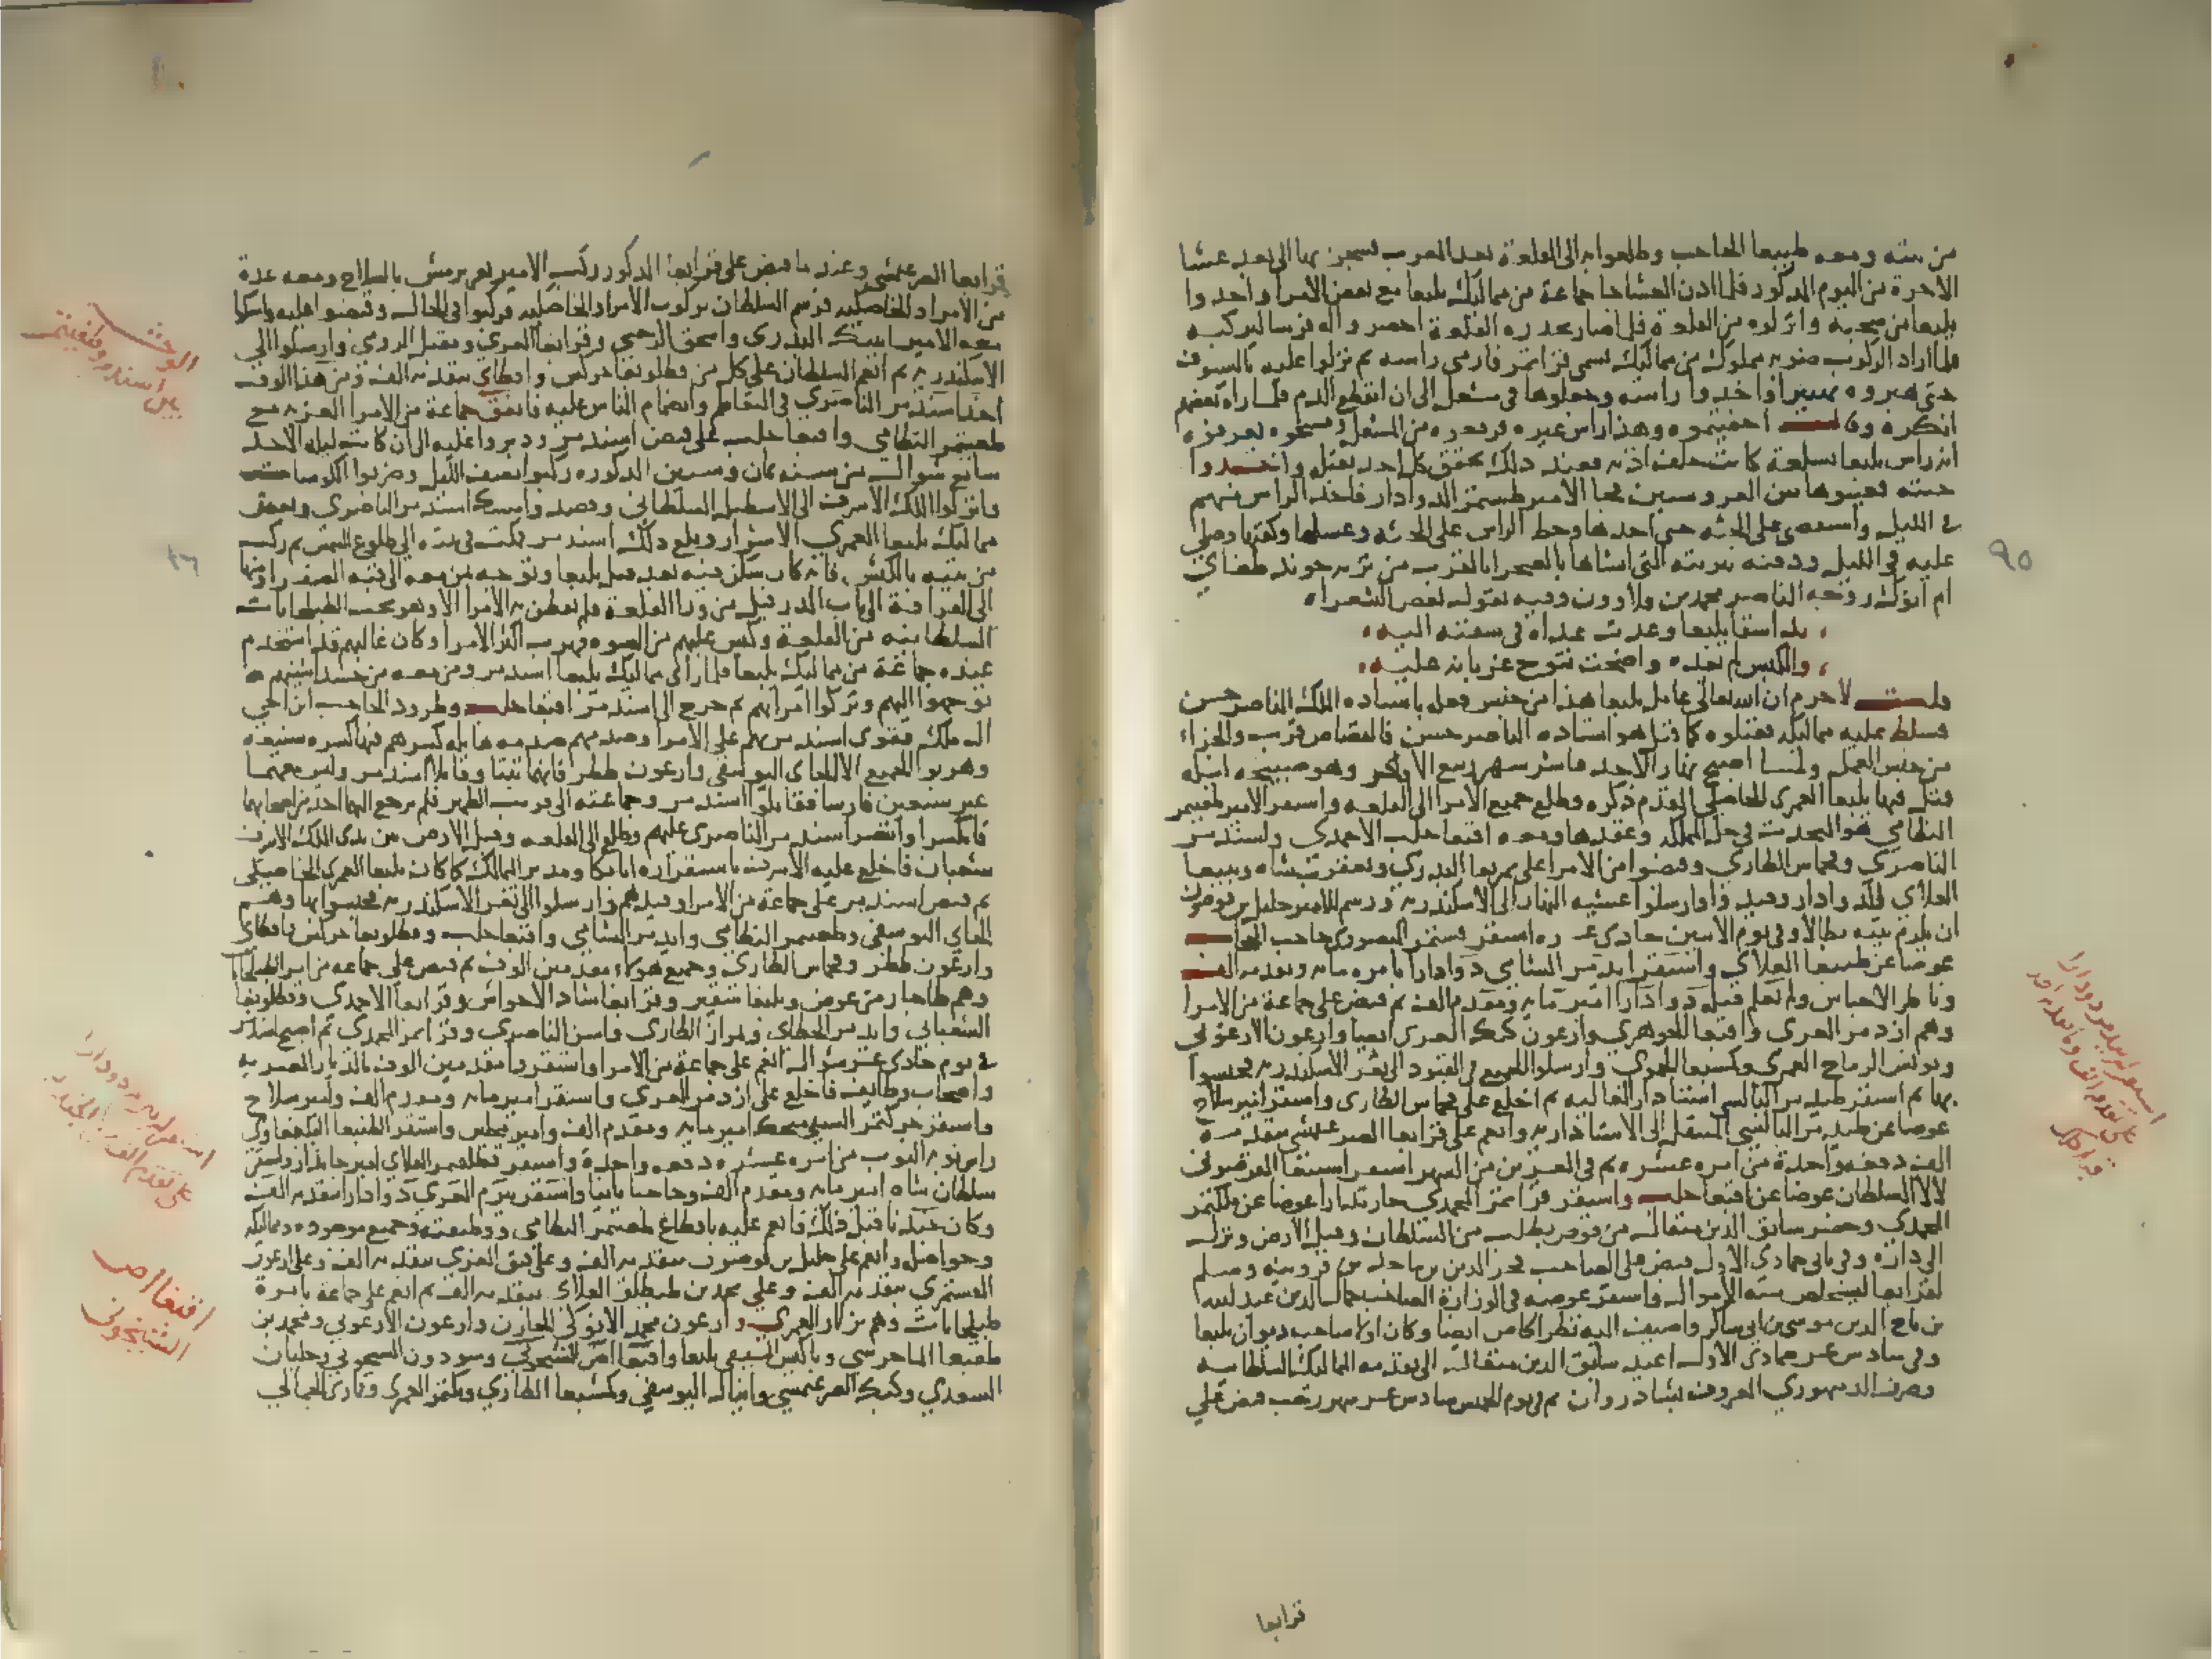 من بيته ومعه طيبغا الحاجب وطلعوا به الى القلعة بعد المغرب فسجن بها الى بعد عشا
الاخرة من اليوم المذكور فلما اذن العشا جا جماعة من مماليك يلبغا مع بعض الامرا واخدوا
يلبغا من سجنه وانزلوه من القلعة فلما صار بحدرة القلعة احضروا له فرسا ليركبه
فلما اراد الركوب ضربه مملوك من مماليكه يسمى قراتمر فارمى راسه ثم نزلوا عليه بالسيوف
حتى هبروه تهبيرا واخدوا راسه وجعلوها في مشعل الى ان انقطع الدم فلما راه بعضهم
انكره وقال اخفيتموه وهذا راس غيره فرفعوه من المشعل ومسحوه ليعرفوه
انه راس يلبغا بسلعة كانت خلف اذنه فعند ذلك تحقق كل احد بقتله واخدوا
جثته فغيبوها بين العروستين فجا الامير طشتمر الدوادار فاخد الراس منهم
في الليل واستقصى على الجثه حتى اخدها وحط الراس على الجثه وغسلها وكفنها وصلى
عليه في الليل ودفنه بتربته التي انشاها بالصحرا بالقرب من تربه خوند طغاي
ام انوك زوجة الناصر محمد بن قلاوون وفيه يقول بعض الشعراء
بدا شقا يلبغا وعدت عداه في سفنه اليه
والكبش لم يفده واضحت تنوح غربانه عليه
قلت لا جرم ان الله تعالى عامل يلبغا هذا من جنس فعله باستاده الملك الناصر حسن
فسلط عليه مماليكه فقتلوه كما قتل هو استاده الناصر حسن فالقصاص قريب والجزاء
من جنس العمل ولما اصبح نهار الاحد عاشر شهر ربيع الاخر وهو صبيحة ليلة
قتل فيها يلبغا العمري الخاصكي المقدم ذكره وطلع جميع الامرا الى القلعه واستقر الامير طغيتمر
النظامي هو المتحدث في حل المملكة وعقدها ومعه اقبغا جلب الاحمدي واسندمر
الناصري وقجماس الطازي وقبضوا من الامرا على تمربغا البدري ويعقوب شاه وبيبغا
العلاي الدوادار وقيدوا وارسلوا عشيه النهار الى الاسكندرية ورسم للامير خليل بن قوصون
ان يلزم بيته بطالا وفي يوم الاثنين حادي عشره استقر قشتمر المنصوري حاجب الحجاب
عوضا عن طيبغا العلاي واستقر ايدمر الشامي دوادارا بامرة مايه وتقدمه الف
وناظر الاحباس ولم يعلم قبله دوادار امير مايه ومقدم الف ثم قبض على جماعة من الامرا
وهم ازدمر العزي واقبغا الجوهري وارغون كتك العزي ايضا وارغون الارغوني
ويونس الرماح العمري وكمشبغا الحموي وارسلوا الجميع في القيود الى ثغر الاسكندريه فحبسوا
بها ثم استقر طيدمر البالسي استادار العاليه ثم اخلع على قجماس الطازي واستقر امير سلاح
عوضا عن طيدمر البالسي المنتقل الى الاستاداريه وانعم على قرابغا الصرغتمشي بتقدمه
الف دفعة واحدة من امره عشره ثم في العشرين من الشهر استقر اسنبغا القوصوني
لالا السلطان عوضا عن اقبغا جلب واستقر قراتمر المحمدي خازندارا عوضا عن تلكتمر
المحمدي وحضر سابق الدين مثقال من قوص بطلب من السلطان وقبل الارض ونزل
الى داره وفي ثاني جمادى الاول قبض على الصاحب فخر الدين بن ماجد بن قروينه وسلم
لقرابغا ليستخلص منه الاموال واستقر عوضه في الوزارة الصاحب جمال الدين عبد الله
بن تاج الدين موسى بن ابي شاكر واضيف اليه نظر الخاص ايضا وكان اولا صاحب ديوان يلبغا
وفي سادس عشر جمادى الاول اعيد سابق الدين مثقال الى تقدمه المماليك السلطانيه
وصرف الدمنهوري المعروف بشادروان ثم في يوم الخميس سادس عشر شهر رجب قبض على
قرابغا
٩٥
استقرار ايدمر دوادارا
قرابغا الصرغتمشي وعند ما قبض على قرابغا المذكور ركب الامير تغري برمش بالسلاح ومعه عدة
من الامرا والخاصكيه فرسم السلطان بركوب الامرا والخاصكيه فركبوا في الحال وقبضوا عليه وامسكوا
معه الامير اينبك البدري واسحق الرحبي وقرابغا العزي ومقبل الرومي وارسلوا الى
الاسكندريه ثم انعم السلطان على كل من قطلوبغا جركس واقطاي بتقدمه الف ومن هذا الوقت
اخذ اسندمر الناصري في التعاظم وانضمام الناس عليه فاتفق جماعة من الامرا العزيه مع
طغيتمر النظامي واقبغا جلب على قبض اسندمر ودبروا عليه الى ان كانت ليلة الاحد
سابع شوال من سنه ثمان وستين المذكوره ركبوا نصف الليل وضربوا الكوسات
وانزلوا الملك الاشرف الى الاسطبل السلطاني وقصدوا مسك اسندمر الناصري وبعض
مماليك يلبغا العمري الاشرار وبلغ ذلك اسندمر فمكث في بيته الى طلوع الشمس ثم ركب
من بيته بالكبش فانه كان سكن فيه بعد قتل يلبغا وتوجه بمن معه الى قبه النصر ومنها
الى القرافة الى باب الدرفيل من ورا القلعة فلم يفطن به الامرا الا وهو تحت الطبلخانات
السلطانيه من القلعة وكبس عليهم من الصوه فهرب اكثر الامرا وكان غالبهم قد استخدم
عنده جماعة من مماليك يلبغا فلما راى مماليك يلبغا اسندمر ومن معه من خشداشيتهم
توجهوا اليهم وتركوا امراهم ثم خرج الى اسندمر اقبغا جلب وطردد الحاجب ابن اخي
ال ملك فقوي اسندمر بهم على الامرا وصدمهم صدمه هايله كسرهم فيها كسره شنيعه
وهربوا الجميع الا الجاي اليوسفي وارغون ططر فانهما ثبتا وقاتلا اسندمر وليس معهما
غير سبعين فارسا فقاتلوا اسندمر وجماعته الى قريب الظهر فلم يرجع اليهما احد من اصحابهما
فانكسرا وانتصر اسندمر الناصري عليهم وطلع الى القلعه وقبل الارض بين يدي الملك الاشرف
شعبان فاخلع عليه الاشرف باستقراره اتابكا ومدبر المماليك كما كان يلبغا العمري الخاصكي
ثم قبض اسندمر على جماعة من الامرا وقيدهم وارسلوا الى ثغر الاسكندريه فحبسوا بها وهم
الجاي اليوسفي وطغيتمر النظامي وايدمر الشامي واقبغا جلب وقطلوبغا جركس واقطاي
وارغون ططر وقجماس الطازي وجميع هولاء مقدمين الوف ثم قبض على جماعه من امرا الطبلخانات
وهم طاجار من عوض ويلبغا شقير وقرابغا شاد الاحواش وقرابغا الاحمدي وقطلوبغا
الشعباني وايدمر الخطاي وتمراز الطازي واسن الناصري وقراتمر المحمدي ثم اصبح اسندمر
في يوم حادي عشر شوال انعم على جماعة من الامرا واستقروا مقدمين الوف بالديار المصريه
واصحاب وظايف فاخلع على ازدمر العزي واستقر امير مايه ومقدم الف وامير سلاح
واستقر جركتمر السيفي منجك امير مايه ومقدم الف وامير مجلس واستقر الطنبغا اليلبغاوي
راس نوبه النوب من امره عشره دفعه واحدة واستقر قطلقتمر العلاي امير جاندار واستقر
سلطان شاه امير مايه ومقدم الف وحاجبا ثانيا واستقر بيرم العزي دوادارا بتقدمه الف
وكان جنديا قبل ذلك فانعم عليه باقطاع طغيتمر النظامي ووظيفته وجميع موجوده ومماليكه
وحواصله وانعم على خليل بن قوصون بتقدمه الف وعلى قنق العزي بتقدمه الف وعلى ارغون
القشتمري بتقدمه الف وعلى محمد بن طيطلق العلاي بتقدمه الف ثم انعم على جماعة بامرة
طبلخانات وهم بزلار العمري وارغون المحمدي الانوكي الخازن وارغون الارغوني ومحمد بن
طقبغا الماجري وباكيش السيفي يلبغا واقبغا آص الشيخوني وسودون الشيخوني وجلبان
السعدي وكبك الصرغتمشي واينال اليوسفي وكمشبغا الطازي وبكتمر العمري وقماري الجمالي
الوحشه
بين اسندمر وطغيتمر
استقرار ايدمر دوادارا
اقبغا اص
الشيخوني